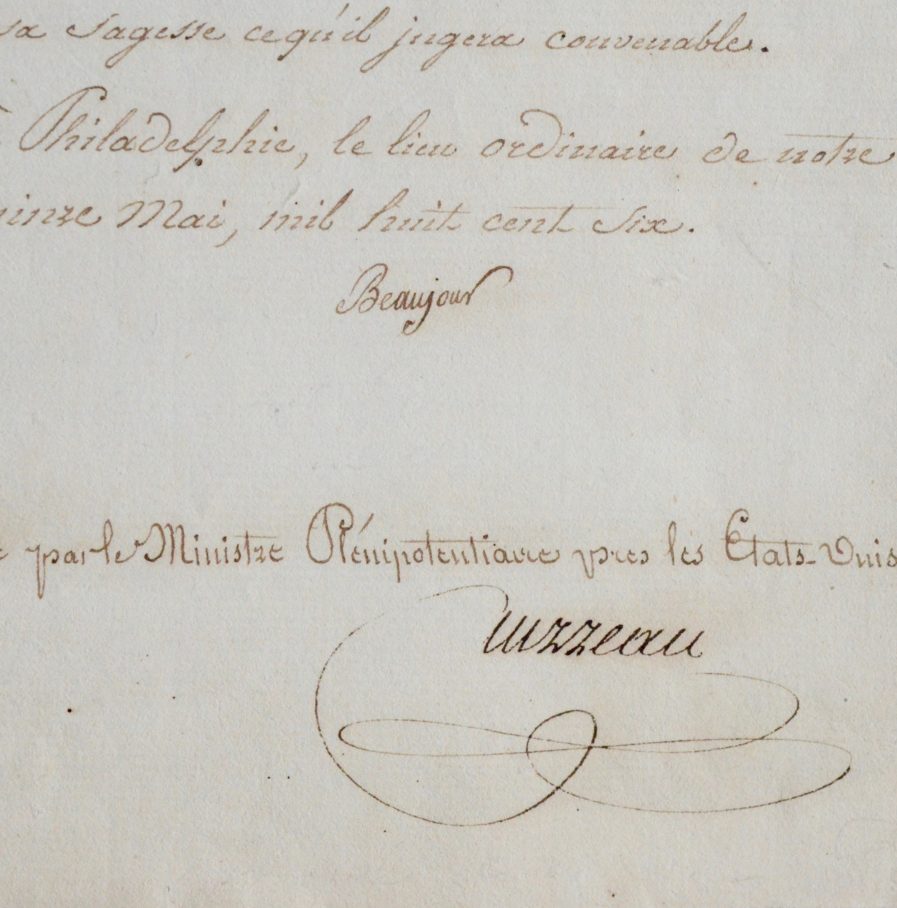 sa sagesse ce qu'il jugera convenable.
Philadelphie, le lieu ordinaire de notre
uinze Mai, mil huit cent six.
Beaujour
par le Ministre Plénipotentiaire pres les Etats-Unis